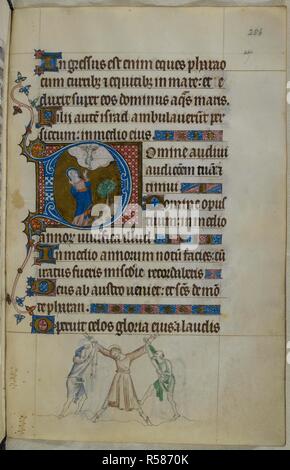 284
Ingressus est enim eques pharao
cum curribus
in mare: et
duxit super eos dominus aquas maris.
filii autem israel ambulaverunt per
siccum: in medio eius
Domine audivi
auditionem tuam:
timui
Domine opus
in medio
annorum vivifica illud
In medio annorum notum facies: cum
iratus fueris misericordie recordaberis
Deus ab austro veniet: et sanctus de mon
te pharan.
Operuit celos gloria eius: laudis
alamy
Image ID: R5870K
www.alamy.com